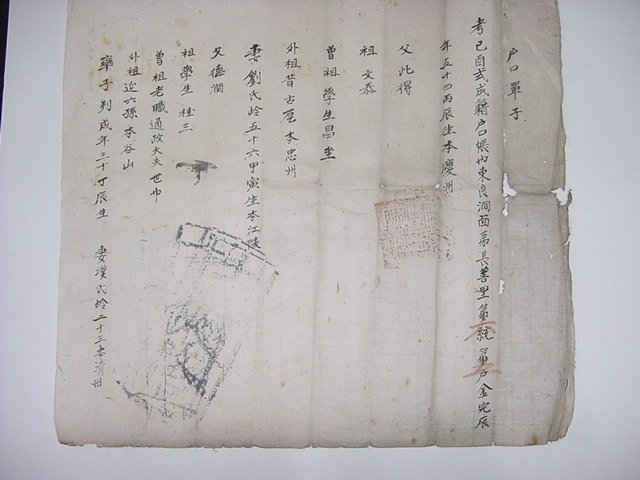 戶口單子
考己酉式成籍戶口帳內東良洞面第長善里第統第戶金完辰
年五十四丙辰生本慶州
父比得
祖文恭
曾祖學生昌
外祖昔古 本忠州
妻劉氏齡五十六甲寅生本江陵
父德潤
祖學生桂三
曾祖老職通政大夫世巾
外祖 六孫本谷山
率子 成年三十丁辰生 妻漢氏齡二十三本清州